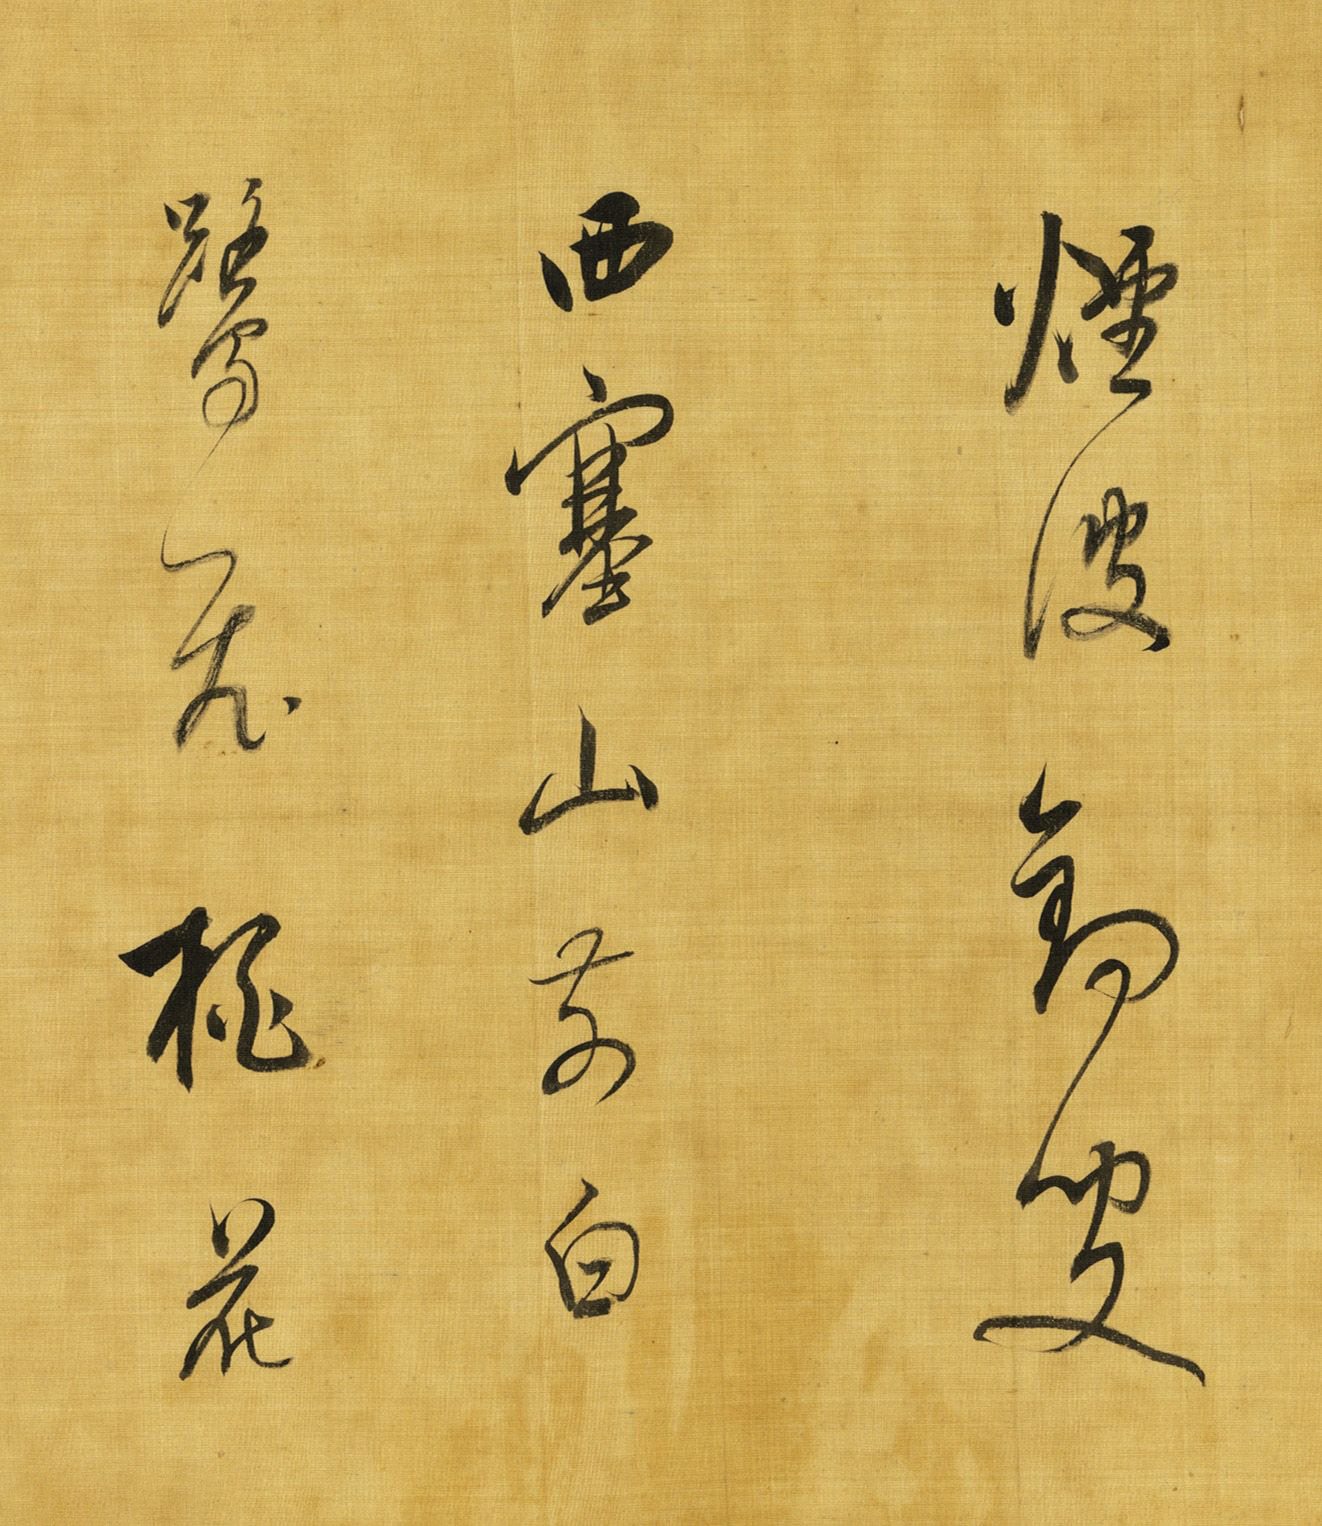 煙波釣叟
西塞山前白
鷺飛桃花